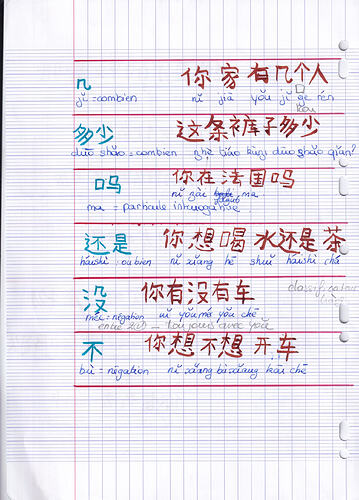 几 你家有几个人
jǐ = combien nǐ jiā yǒu jǐ ge rén
多少 这条裤子多少
duō shǎo = combien zhè tiáo kùzi duō shǎo qián?
吗 你在法国吗
ma = particule interrogative nǐ zài ma
还是 你想喝水还是茶
háishì = ou bien nǐ xiǎng hē shuǐ háishì chá
没 你有没有车
méi = négation nǐ yǒu méi yǒu chē
toujours avec yǒu
不 你想不想开车
bù = négation nǐ xiǎng bù xiǎng kāi chē